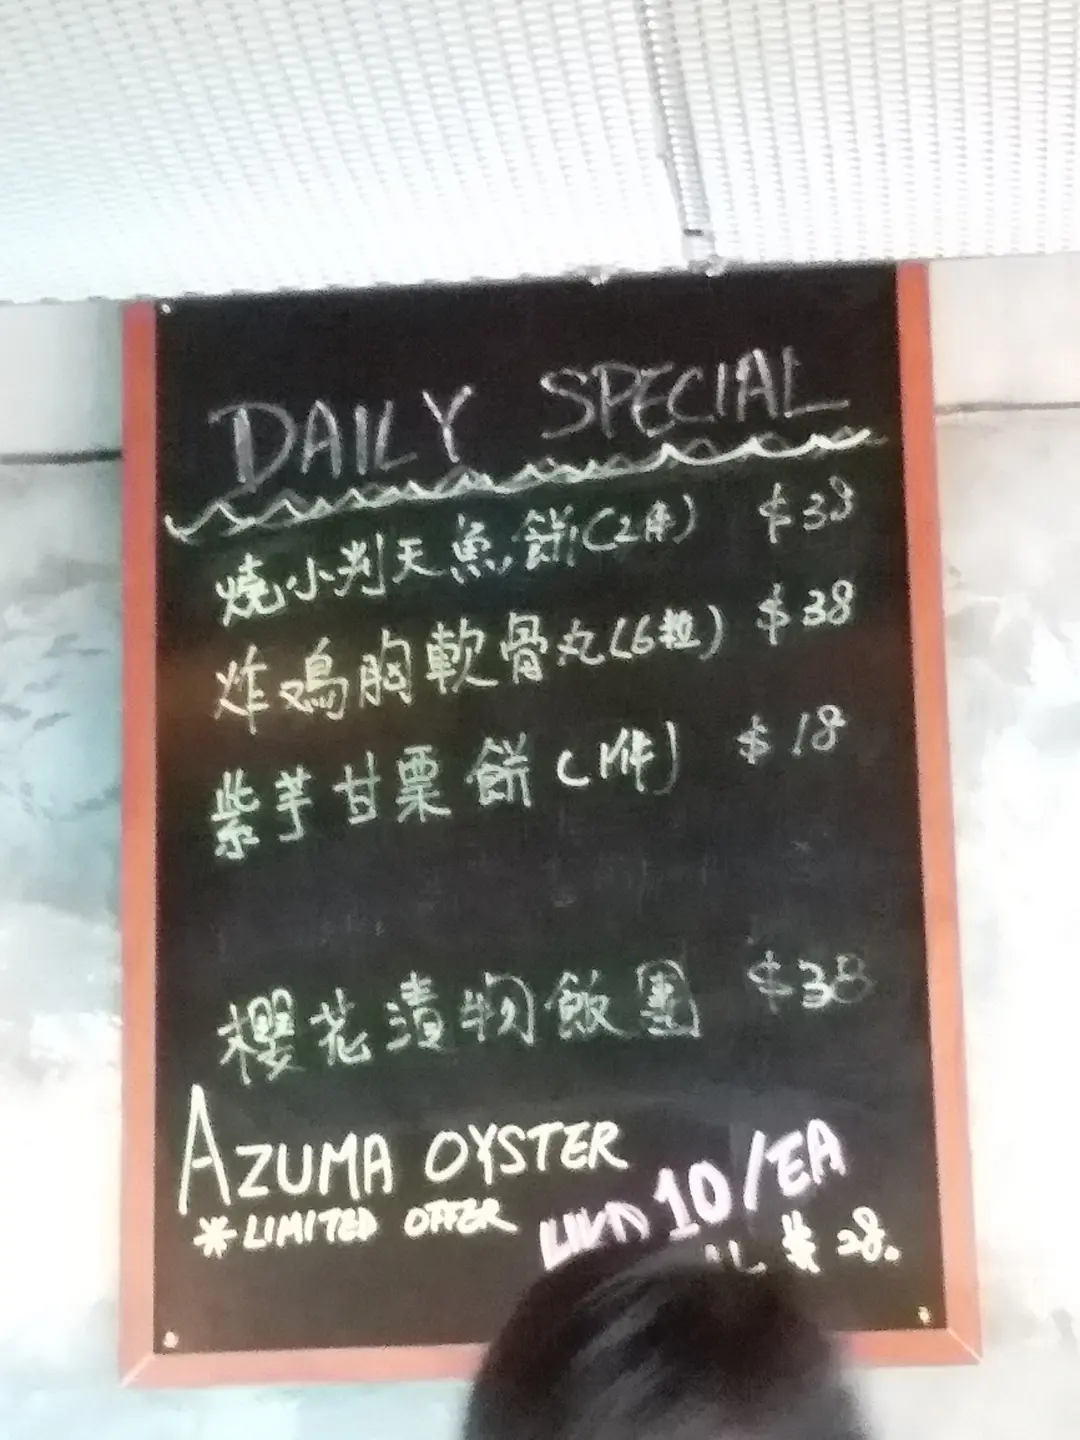 DAILY SPECIAL
燒小判天魚餅(2件) $38
炸鳮胸軟骨丸(6粒) $38
紫芋甘栗餅(1件) $18
櫻花漬物飯團 $38
AZUMA OYSTER
*LIMITED OFFER HKD 10/EA
$28.